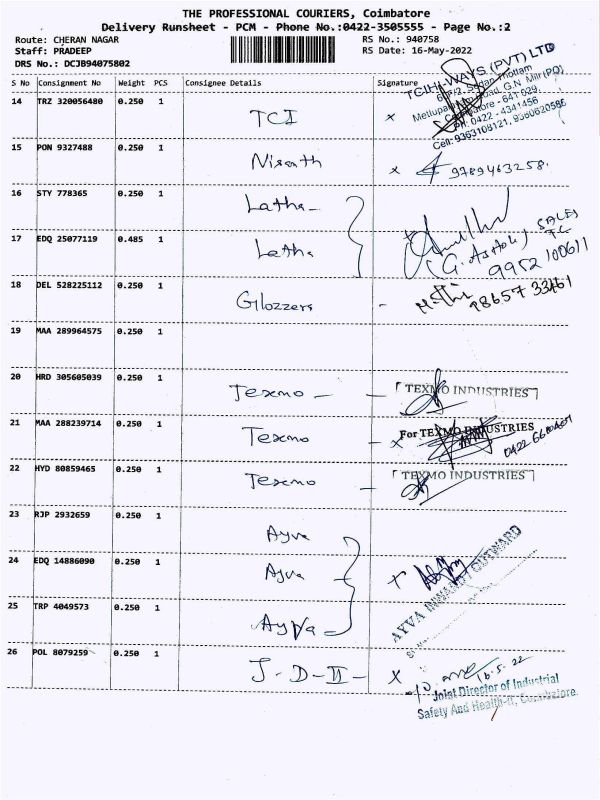 THE PROFESSIONAL COURIERS, Coimbatore
Delivery Runsheet - PCM - Phone No.:0422-3505555 - Page No.:2
Route: CHERAN NAGAR RS No.: 940758
Staff: PRADEEP RS Date: 16-May-2022
DRS No.: DCJB94075802
S No Consignment No Weight PCS Consignee Details Signature
14 TRZ 320056480 0.250 1 TCI x
TCIHI-WAYS (PVT) LTD
Cell: 9363108121, 9360620586
15 PON 9327488 0.250 1 Nisanth x 9789463258.
16 STY 778365 0.250 1 Latha
17 EDQ 25077119 0.485 1 Latha
SALES
9952 100611
18 DEL 528225112 0.250 1 Glozzers - 98657 33461
19 MAA 289964575 0.250 1
20 HRD 305605039 0.250 1 Texmo - - TEXMO INDUSTRIES
21 MAA 288239714 0.250 1 Texmo - x For TEXMO INDUSTRIES
22 HYD 80859465 0.250 1 Texmo - TEXMO INDUSTRIES
23 RJP 2932659 0.250 1 Ayva
24 EDQ 14886090 0.250 1 Ayva
AYVA INWARD / OUTWARD
25 TRP 4049573 0.250 1 Ayva
26 POL 8079259 0.250 1 J-D-II- x
16.5.22
Joint Director of Industrial
Safety And Health-II, Coimbatore.